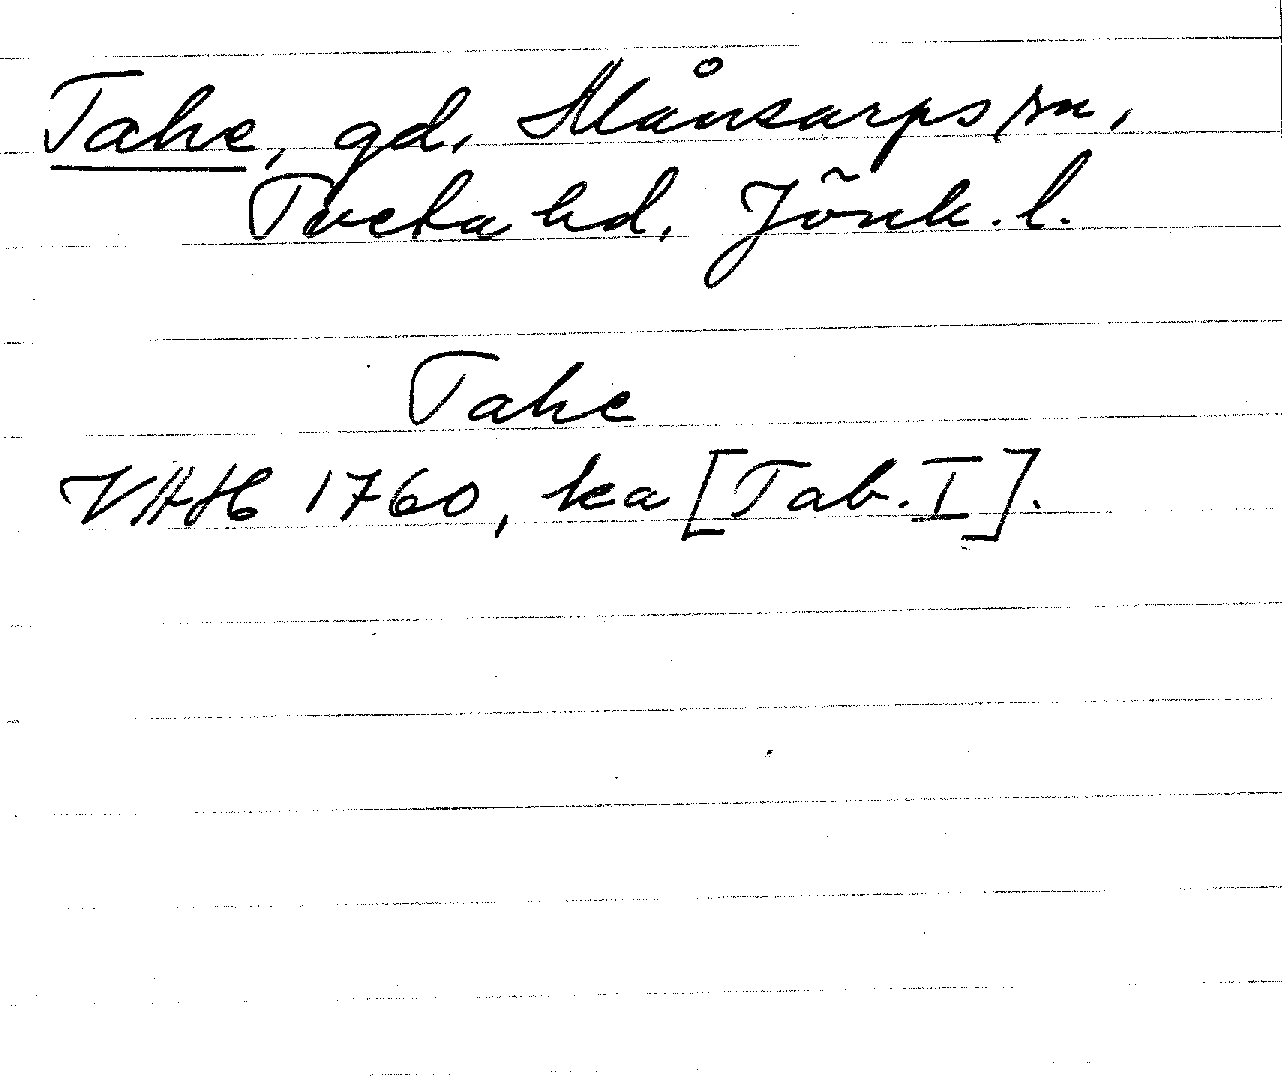 Tahe, gd, Månsarps sn,
Tveta hd, Jönk. l.
Tahe
VAH 1760, ka [Tab. I].